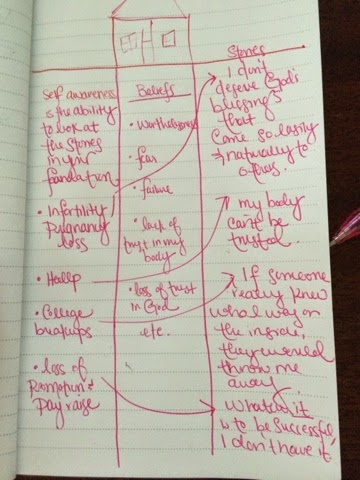 Self awareness
is the ability
to look at
the stones
in your
foundation.
• Infertility
Pregnancy
loss
• Hellp
• College
breakups
• loss of
Promotion &
Pay raise
Beliefs
• worthlessness
• fear
• failure
• lack of
trust in my
body
• loss of trust
in God
etc.
Stones
I don't
deserve God's
blessings
that
came so easily
& naturally to
others.
my body
can't be
trusted.
If someone
really knew
what was on
the inside,
they would
throw me
away
it
is to be successful,
I don't have it